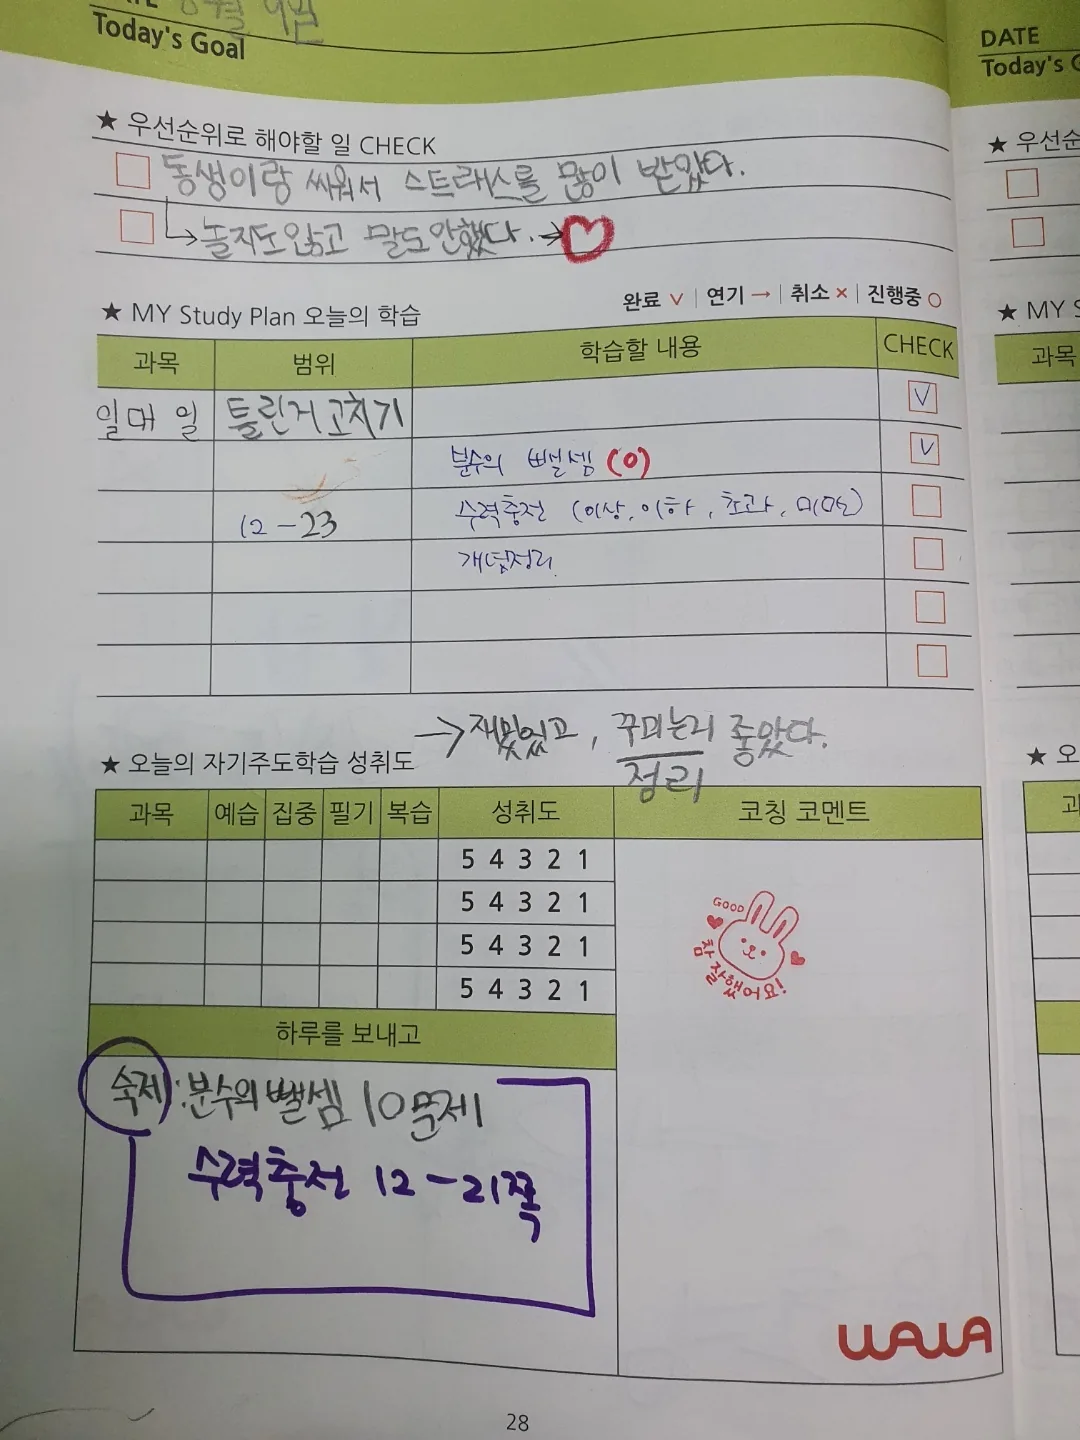 Today's Goal
DATE
Today's
★ 우선순위로 해야할 일 CHECK
동생이랑 싸워서 스트래스를 많이 받았다.
→놀지도않고 말도안했다. →♡
★ MY Study Plan 오늘의 학습
완료 ∨ | 연기 → | 취소 × | 진행중 ○
과목 범위 학습할 내용 CHECK
일대일 틀린거고치기 ∨
분수의 뺄셈 (0) ∨
12-23 수력충전 (이상, 이하, 초과, 미만)
개념정리
→재밌있고, 꾸미는게 좋았다.
정리
★ 오늘의 자기주도학습 성취도
과목 예습 집중 필기 복습 성취도 코칭 코멘트
5 4 3 2 1
5 4 3 2 1
5 4 3 2 1
5 4 3 2 1
GOOD
참 잘했어요!
하루를 보내고
숙제:분수의 뺄셈 10문제
수력충전 12-21쪽
WAWA
28
★ 우선순
★ MY S
과목
★ 오